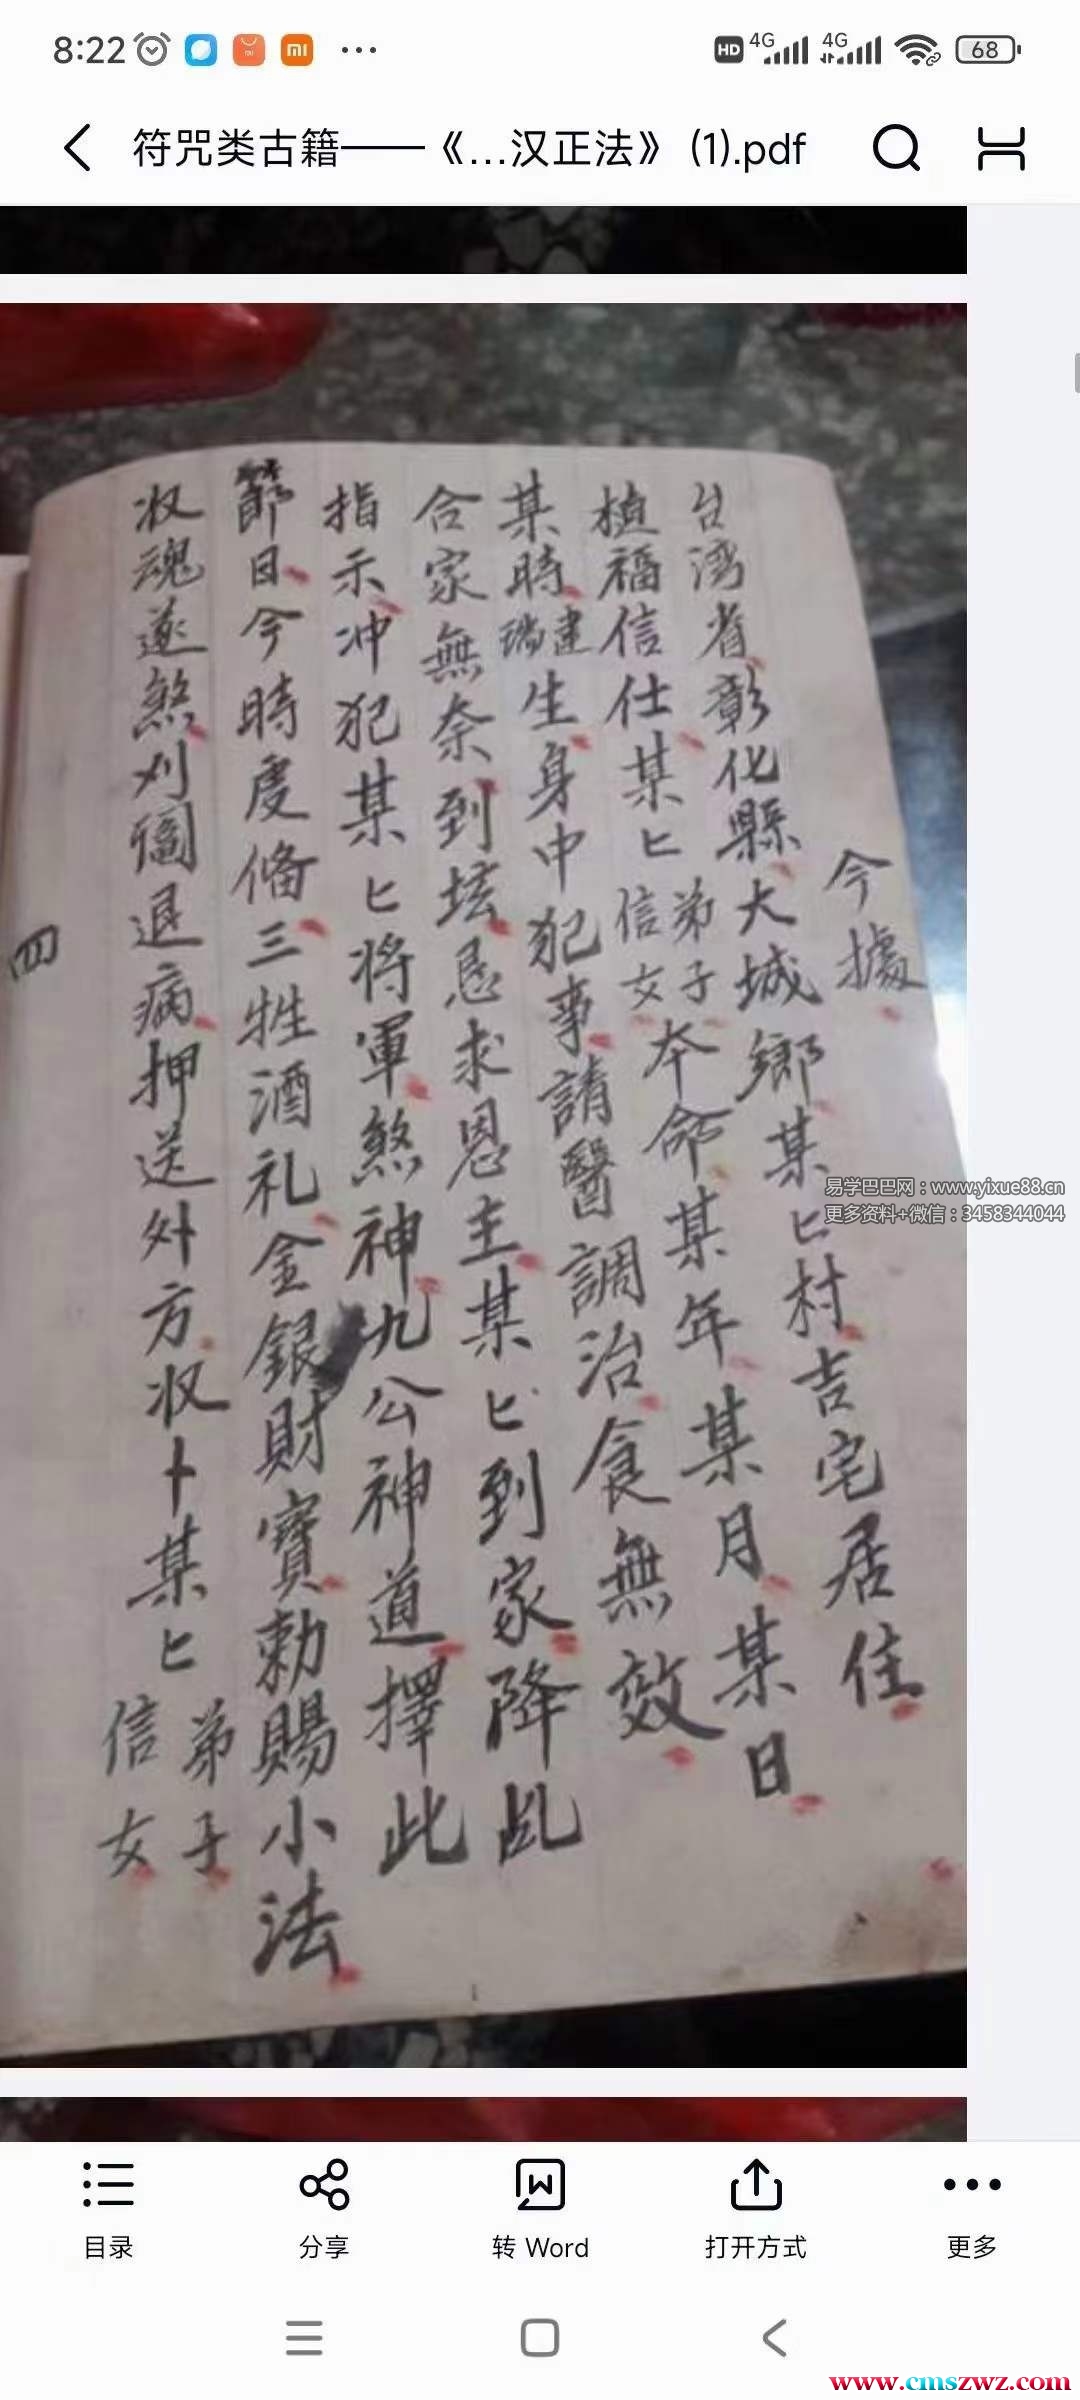 8:22
HD 4G 4G 68
符咒类古籍——《...汉正法》 (1).pdf
今據
台湾省彰化縣大城鄉某匕村吉宅居住
植福信仕某匕弟子信女本命某年某月某日
某時瑞建生身中犯事請醫調治食無效
合家無奈到坛恳求恩主某匕到家降乩
指示冲犯某匕将軍煞神九公神道擇此
節日今時虔俻三牲酒礼金銀財寶勅賜小法
收魂遂煞刈鬮退病押送外方收卜某匕弟子信女
四
易学巴巴网：www.yixue88.cn
更多资料+微信：3458344044
目录
分享
转 Word
打开方式
更多
www.cmszwz.com